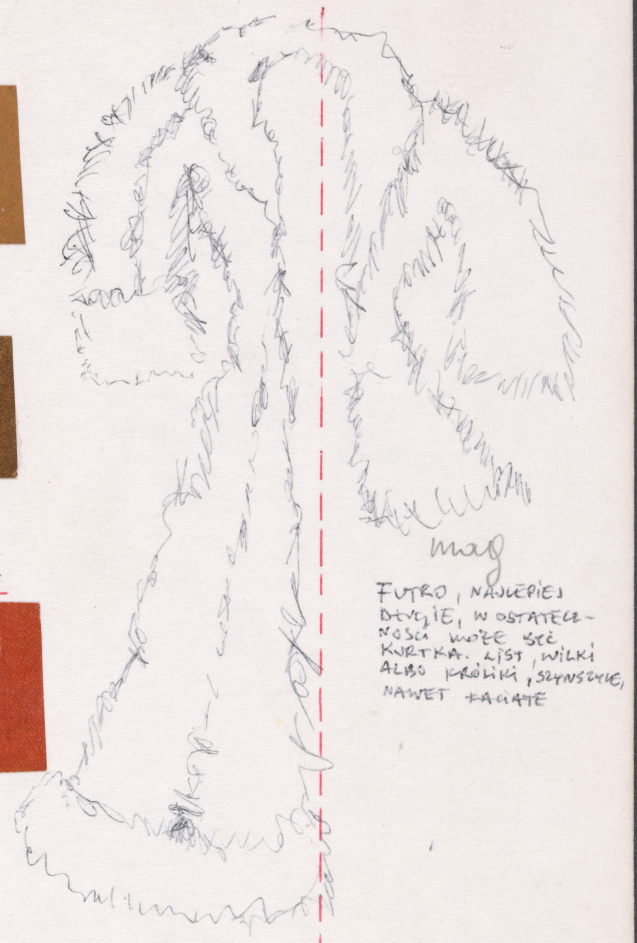 mag
FUTRO, NAJLEPIEJ
DŁUGIE, W OSTATECZ-
NOŚCI MOŻE BYĆ
KURTKA. LIST, WILKI
ALBO KRÓLIKI, SZYNSZYLE,
NAWET ŁACIATE